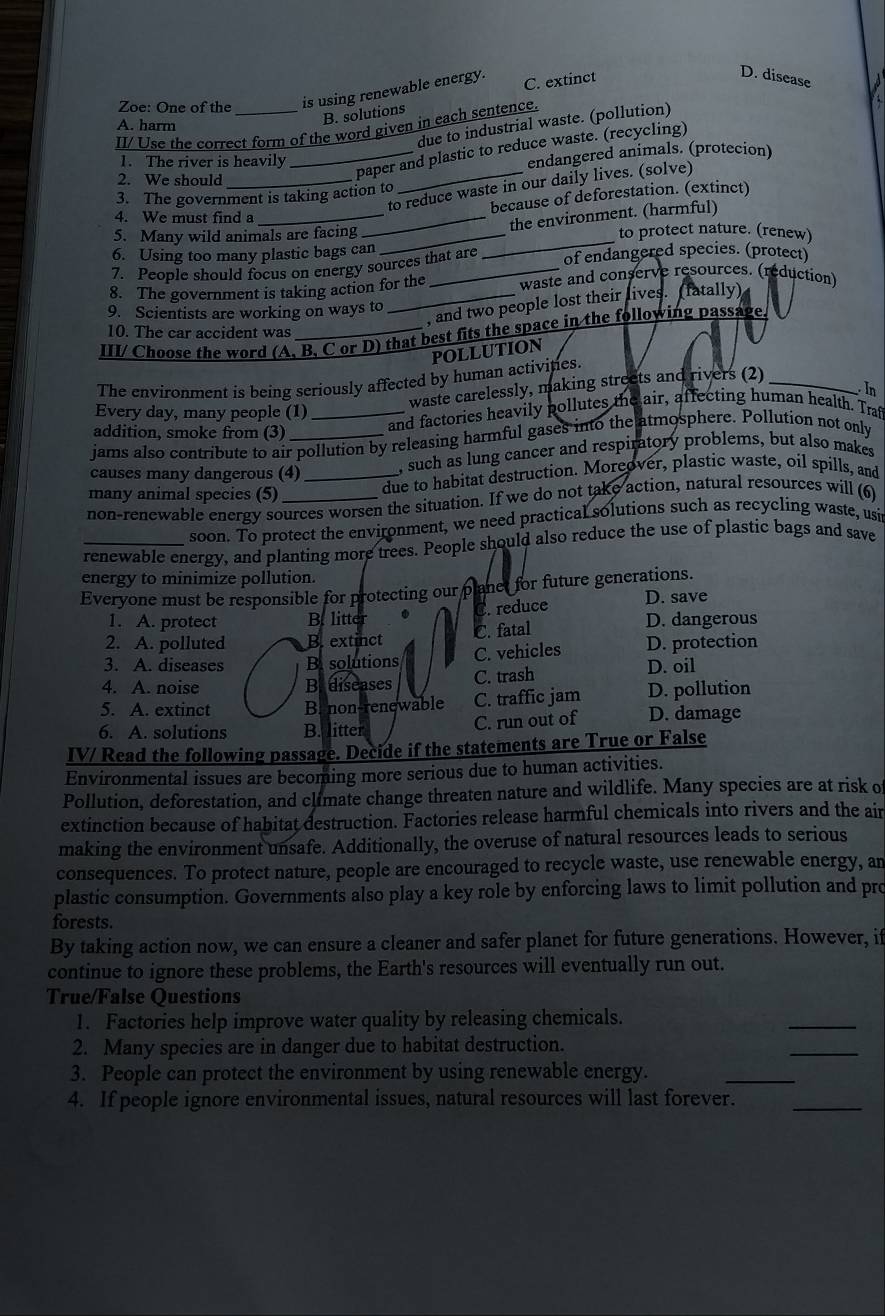 Zoe: One of the ________ is using renewable energy.
A. harm B. solutions C. extinct D. disease
II/ Use the correct form of the word given in each sentence.
1. The river is heavily ________ due to industrial waste. (pollution)
2. We should ________ paper and plastic to reduce waste. (recycling)
3. The government is taking action to ________ endangered animals. (protecion)
4. We must find a ________ to reduce waste in our daily lives. (solve)
5. Many wild animals are facing ________ because of deforestation. (extinct)
6. Using too many plastic bags can ________ the environment. (harmful)
7. People should focus on energy sources that are ________ to protect nature. (renew)
8. The government is taking action for the ________ of endangered species. (protect)
9. Scientists are working on ways to ________ waste and conserve resources. (reduction)
10. The car accident was ________, and two people lost their lives. (fatally)
III/ Choose the word (A, B, C or D) that best fits the space in the following passage.
POLLUTION
The environment is being seriously affected by human activities.
Every day, many people (1) ________ waste carelessly, making streets and rivers (2) ________. In
addition, smoke from (3) ________ and factories heavily pollutes the air, affecting human health. Traf
jams also contribute to air pollution by releasing harmful gases into the atmosphere. Pollution not only
causes many dangerous (4) ________, such as lung cancer and respiratory problems, but also makes
many animal species (5) ________ due to habitat destruction. Moreover, plastic waste, oil spills, and
non-renewable energy sources worsen the situation. If we do not take action, natural resources will (6)
________ soon. To protect the environment, we need practical solutions such as recycling waste, usin
renewable energy, and planting more trees. People should also reduce the use of plastic bags and save
energy to minimize pollution.
Everyone must be responsible for protecting our planet for future generations.
1. A. protect B. litter C. reduce D. save
2. A. polluted B. extinct C. fatal D. dangerous
3. A. diseases B. solutions C. vehicles D. protection
4. A. noise B. diseases C. trash D. oil
5. A. extinct B. non-renewable C. traffic jam D. pollution
6. A. solutions B. litter C. run out of D. damage
IV/ Read the following passage. Decide if the statements are True or False
Environmental issues are becoming more serious due to human activities.
Pollution, deforestation, and climate change threaten nature and wildlife. Many species are at risk of
extinction because of habitat destruction. Factories release harmful chemicals into rivers and the air
making the environment unsafe. Additionally, the overuse of natural resources leads to serious
consequences. To protect nature, people are encouraged to recycle waste, use renewable energy, an
plastic consumption. Governments also play a key role by enforcing laws to limit pollution and pro
forests.
By taking action now, we can ensure a cleaner and safer planet for future generations. However, if
continue to ignore these problems, the Earth's resources will eventually run out.
True/False Questions
1. Factories help improve water quality by releasing chemicals. ________
2. Many species are in danger due to habitat destruction. ________
3. People can protect the environment by using renewable energy. ________
4. If people ignore environmental issues, natural resources will last forever. ________